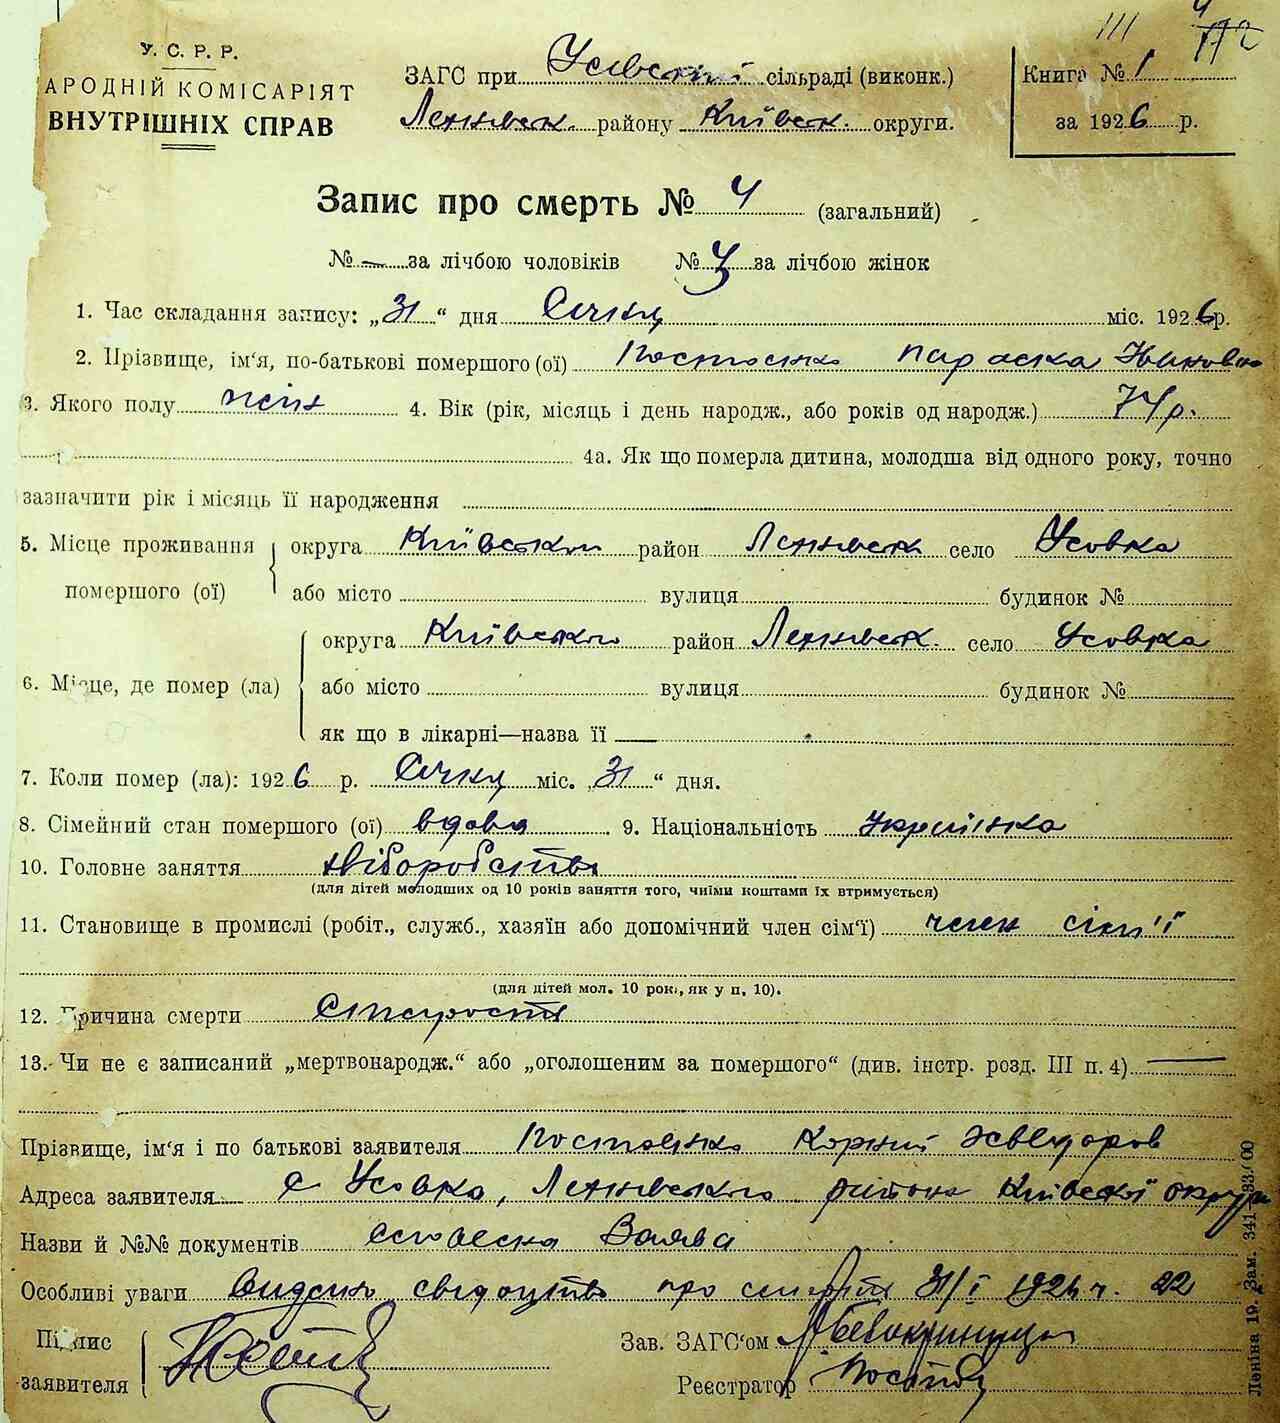 III 4 112
У. С. Р. Р.
АРОДНІЙ КОМІСАРІЯТ
ВНУТРІШНІХ СПРАВ
ЗАГС при Усівській сільраді (виконк.)
район у Київськ. округи.
Книга № 1
за 1926 р.
Запис про смерть № 4 (загальний)
№ — за лічбою чоловіків № 3 за лічбою жінок
1. Час складання запису: „31“ дня Січня міс. 1926 р.
2. Прізвище, ім'я, по-батькові помершого (ої) Костенко Параска
3. Якого полу жін 4. Вік (рік, місяць і день народж., або років од народж.) 74 р.
4а. Як що померла дитина, молодша від одного року, точно
зазначити рік і місяць її народження
5. Місце проживання помершого (ої) округа Київської район село Усовка
або місто вулиця будинок №
6. Місце, де помер (ла) округа Київської район село Усовка
або місто вулиця будинок №
як що в лікарні—назва її —
7. Коли помер (ла): 1926 р. Січня міс. „31“ дня.
8. Сімейний стан помершого (ої) вдова 9. Національність Українка
10. Головне заняття хліборобство
(для дітей молодших од 10 років заняття того, чиїми коштами їх втримується)
11. Становище в промислі (робіт., служб., хазяїн або допомічний член сім'ї) член сім'ї
(для дітей мол. 10 рок., як у п. 10).
12. Причина смерти Старость
13. Чи не є записаний „мертвонародж.“ або „оголошеним за помершого“ (див. інстр. розд. III п. 4) —
Прізвище, ім'я і по батькові заявителя Костенко Корній
Адреса заявителя с Усовка, района Київської округи
Назви й №№ документів словесна Заява
Особліві уваги Видано свідоцтво про смерть 31/I 192 р. 22
Підпис заявителя
Зав. ЗАГС'ом
Реєстратор
Леніна 19. Зам. 341